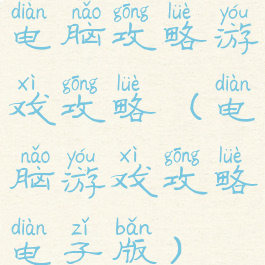 diàn nǎo gōng lüè yóu
电脑攻略游
xì gōng lüè diàn
戏攻略（电
nǎo yóu xì gōng lüè
脑游戏攻略
diàn zǐ bǎn
电子版）